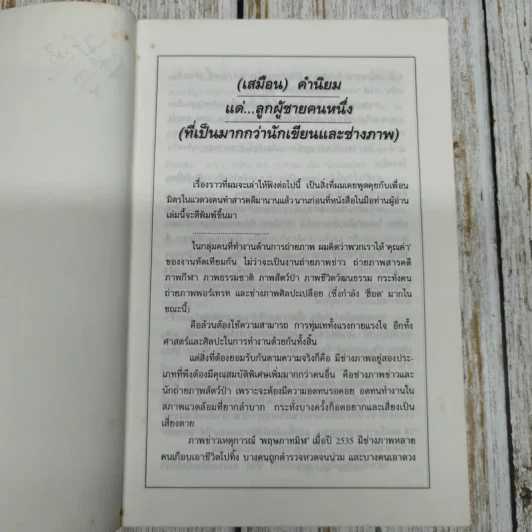 (เสมือน) คำนิยม
แด่...ลูกผู้ชายคนหนึ่ง
(ที่เป็นมากกว่านักเขียนและช่างภาพ)
เรื่องราวที่ผมจะเล่าให้ฟังต่อไปนี้ เป็นสิ่งที่ผมเคยพูดคุยกับเพื่อน
มิตรในแวดวงคนทำสารคดีมานานแล้ว นานก่อนที่หนังสือในมือท่านผู้อ่าน
เล่มนี้จะตีพิมพ์ขึ้นมา
..............................
ในกลุ่มคนที่ทำงานด้านการถ่ายภาพ ผมคิดว่าพวกเราให้ 'คุณค่า'
ของงานทัดเทียมกัน ไม่ว่าจะเป็นงานถ่ายภาพข่าว ถ่ายภาพสารคดี
ภาพกีฬา ภาพธรรมชาติ ภาพสัตว์ป่า ภาพชีวิตวัฒนธรรม กระทั่งคน
ถ่ายภาพพอร์เทรท และช่างภาพศิลปะเปลือย (ซึ่งกำลัง 'ฮ็อต' มากใน
ขณะนี้)
คือล้วนต้องใช้ความสามารถ การทุ่มเททั้งแรงกายแรงใจ อีกทั้ง
ศาสตร์และศิลปะในการทำงานด้วยกันทั้งสิ้น
แต่สิ่งที่ต้องยอมรับกันตามความจริงก็คือ มีช่างภาพอยู่สองประ-
เภทที่พึงต้องมีคุณสมบัติพิเศษเพิ่มมากกว่าคนอื่น คือช่างภาพข่าวและ
นักถ่ายภาพสัตว์ป่า เพราะจะต้องมีความอดทนรอคอย อดทนทำงานใน
สภาพแวดล้อมที่ยากลำบาก กระทั่งบางครั้งก็อดอยากและเสี่ยงเป็น
เสี่ยงตาย
ภาพข่าวเหตุการณ์ 'พฤษภาทมิฬ' เมื่อปี 2535 มีช่างภาพหลาย
คนเกือบเอาชีวิตไปทิ้ง บางคนถูกตำรวจหวดจนน่วม และบางคนเอาดวง